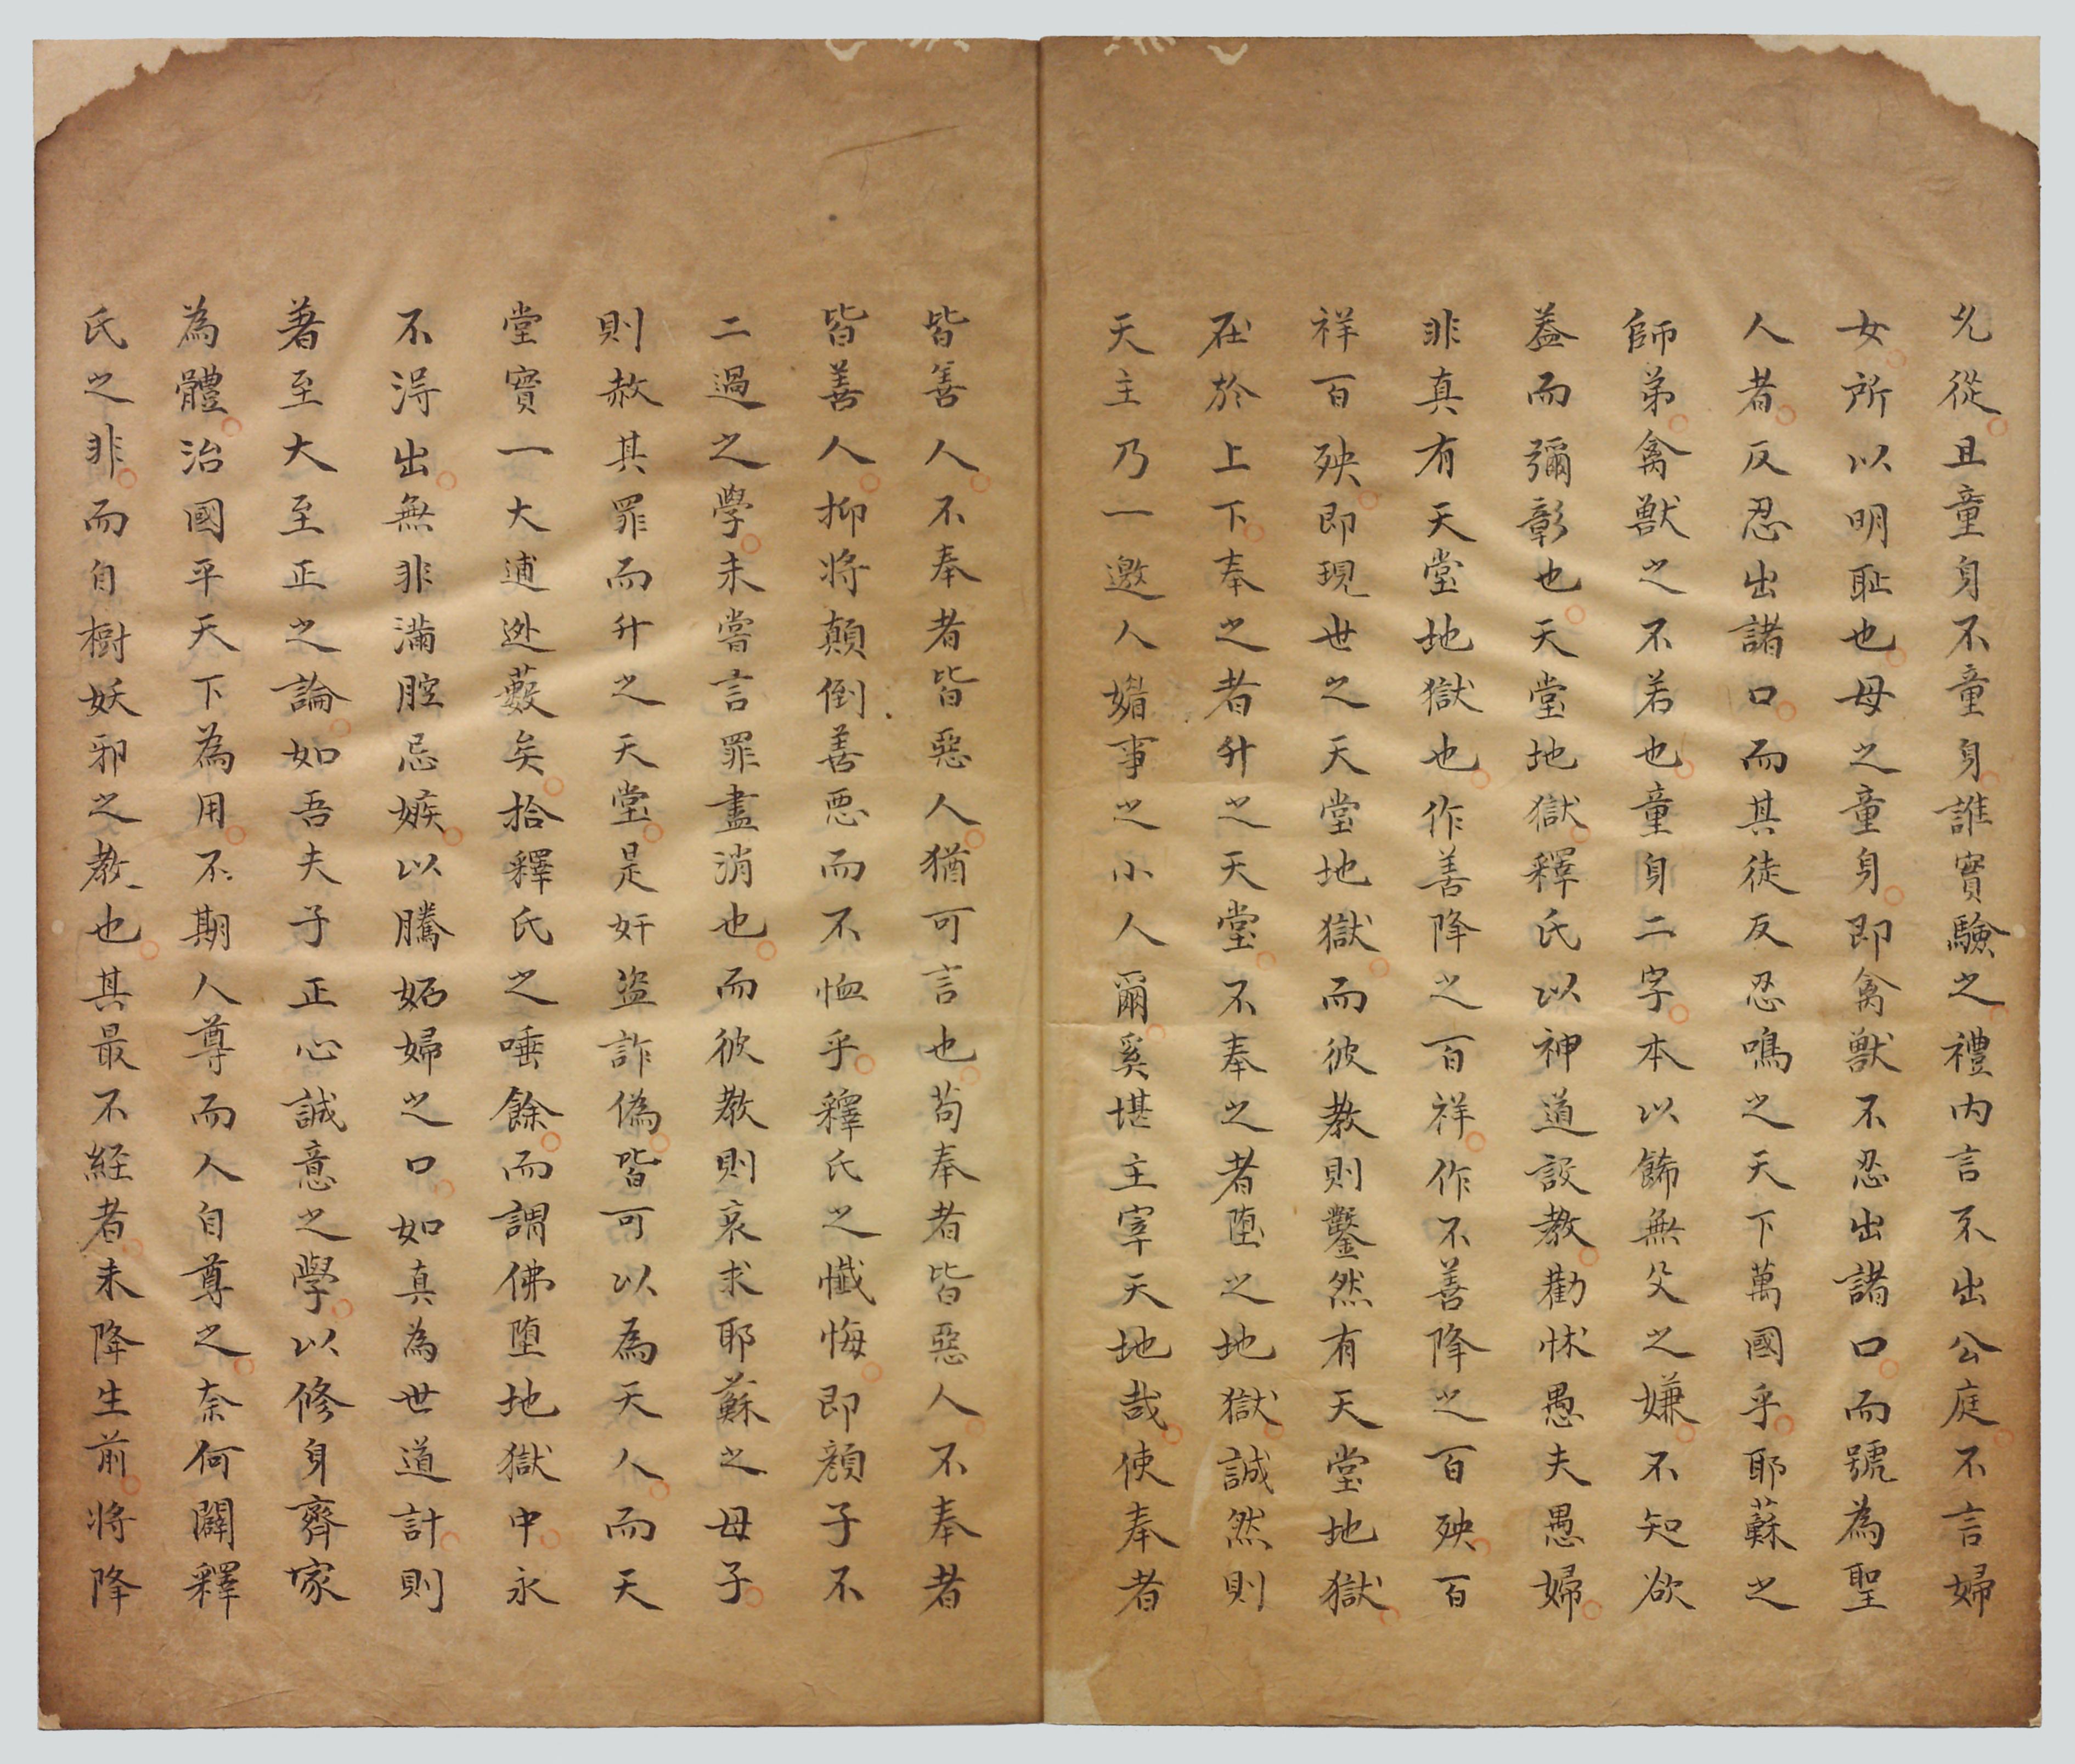 允從且童身不童身誰實驗之禮内言不出公庭不言婦
女所以明恥也母之童身即禽獸不忍出諸口而號為聖
人者反忍出諸口而其徒反忍鳴之天下萬國乎耶蘇之
師弟禽獸之不若也童身二字本以飾無父之嫌不知欲
葢而彌彰也天堂地獄釋氏以神道設教勸怵愚夫愚婦
非真有天堂地獄也作善降之百祥作不善降之百殃百
祥百殃即現世之天堂地獄而彼教則鑿然有天堂地獄
在於上下奉之者升之天堂不奉之者堕之地獄誠然則
天主乃一邀人媚事之小人爾奚堪主宰天地哉使奉者
皆善人不奉者皆惡人猶可言也茍奉者皆惡人不奉者
皆善人抑將顛倒善惡而不恤乎釋氏之懺悔即顔子不
二過之學未嘗言罪盡消也而彼教則哀求耶蘇之母子
則赦其罪而升之天堂是奸盗詐偽皆可以為天人而天
堂實一大逋逃藪矣拾釋氏之唾餘而謂佛堕地獄中永
不淂出無非滿腔忌嫉以騰妬婦之口如真為世道計則
著至大至正之論如吾夫子正心誠意之學以修身齊家
為體治國平天下為用不期人尊而人自尊之奈何闢釋
氏之非而自樹妖邪之教也其最不経者未降生前將降